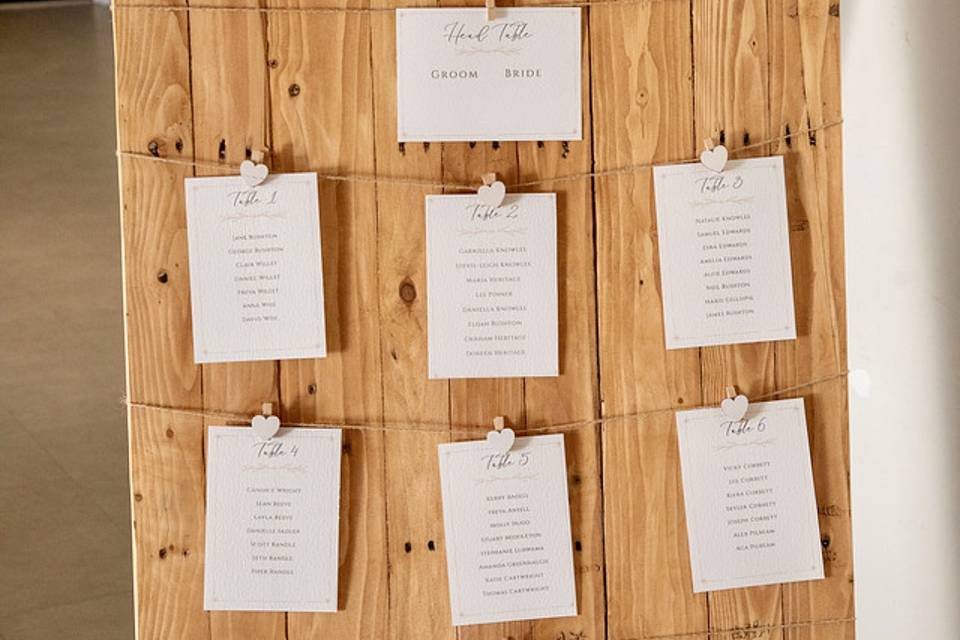 Head Table
GROOM BRIDE
Table 1
JANE RUSHTON
GEORGE RUSHTON
CLAIR WILLET
DANIEL WILLET
FREYA WILLET
ANNA WISE
DAVID WISE
Table 2
GABRIELLA KNOWLES
KNOWLES
MARIA HERITAGE
LEE
DANIELLA KNOWLES
ELIJAH RUSHTON
GRAHAM HERITAGE
DOREEN HERITAGE
Table 3
NATALIE KNOWLES
SAMUEL EDWARDS
EDWARDS
AMELIA EDWARDS
ALFIE EDWARDS
NEIL RUSHTON
MARIE GILLESPIE
JAMES RUSHTON
Table 4
CANDICE WRIGHT
SEAN REEVE
LAYLA REEVE
DANIELLE SADLER
SCOTT RANDLE
SETH RANDLE
PIPER RANDLE
Table 5
KERRY ANSELL
FREYA ANSELL
MOLLY HUGO
STUART MIDDLETON
STEPHANIE LUBWAMA
AMANDA GREENHALGH
KATIE CARTWRIGHT
THOMAS CARTWRIGHT
Table 6
VICKY CORBETT
LEE CORBETT
KIERA CORBETT
SKYLER CORBETT
JOSEPH CORBETT
ALEX PILBEAM
PILBEAM